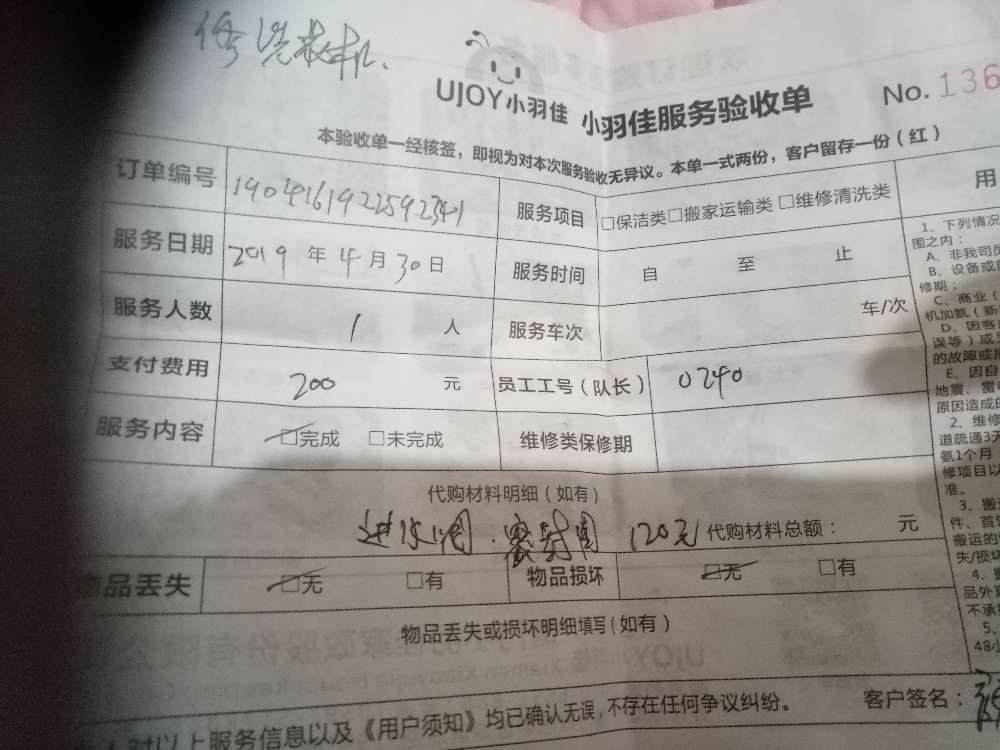 修洗衣机.
UJOY小羽佳 小羽佳服务验收单 No. 136
本验收单一经核签，即视为对本次服务验收无异议。本单一式两份，客户留存一份（红）
订单编号 服务项目 □保洁类□搬家运输类 □维修清洗类
服务日期 2019 年 4 月 30 日 服务时间 自 至 止
服务人数 1 人 服务车次 车/次
支付费用 200 元 员工工号（队长） 0240
服务内容 □完成 □未完成 维修类保修期
代购材料明细（如有）
进水阀.密封圈 120元 代购材料总额： 元
物品丢失 □无 □有 物品损坏 □无 □有
物品丢失或损坏明细填写（如有）
对以上服务信息以及《用户须知》均已确认无误，不存在任何争议纠纷。 客户签名：
用
1、下列情况
围之内：
A、非我司员
B、设备或
修期；
C、商业（
机加氨（新
D、因客
误等）或
的故障或损
E、因自
地震、雷
原因造成的
2、维修
道疏通3天
氨1个月
修项目以
准。
3、搬
件、首
搬运的
失/损坏
4、
品外
不承
5、
48小